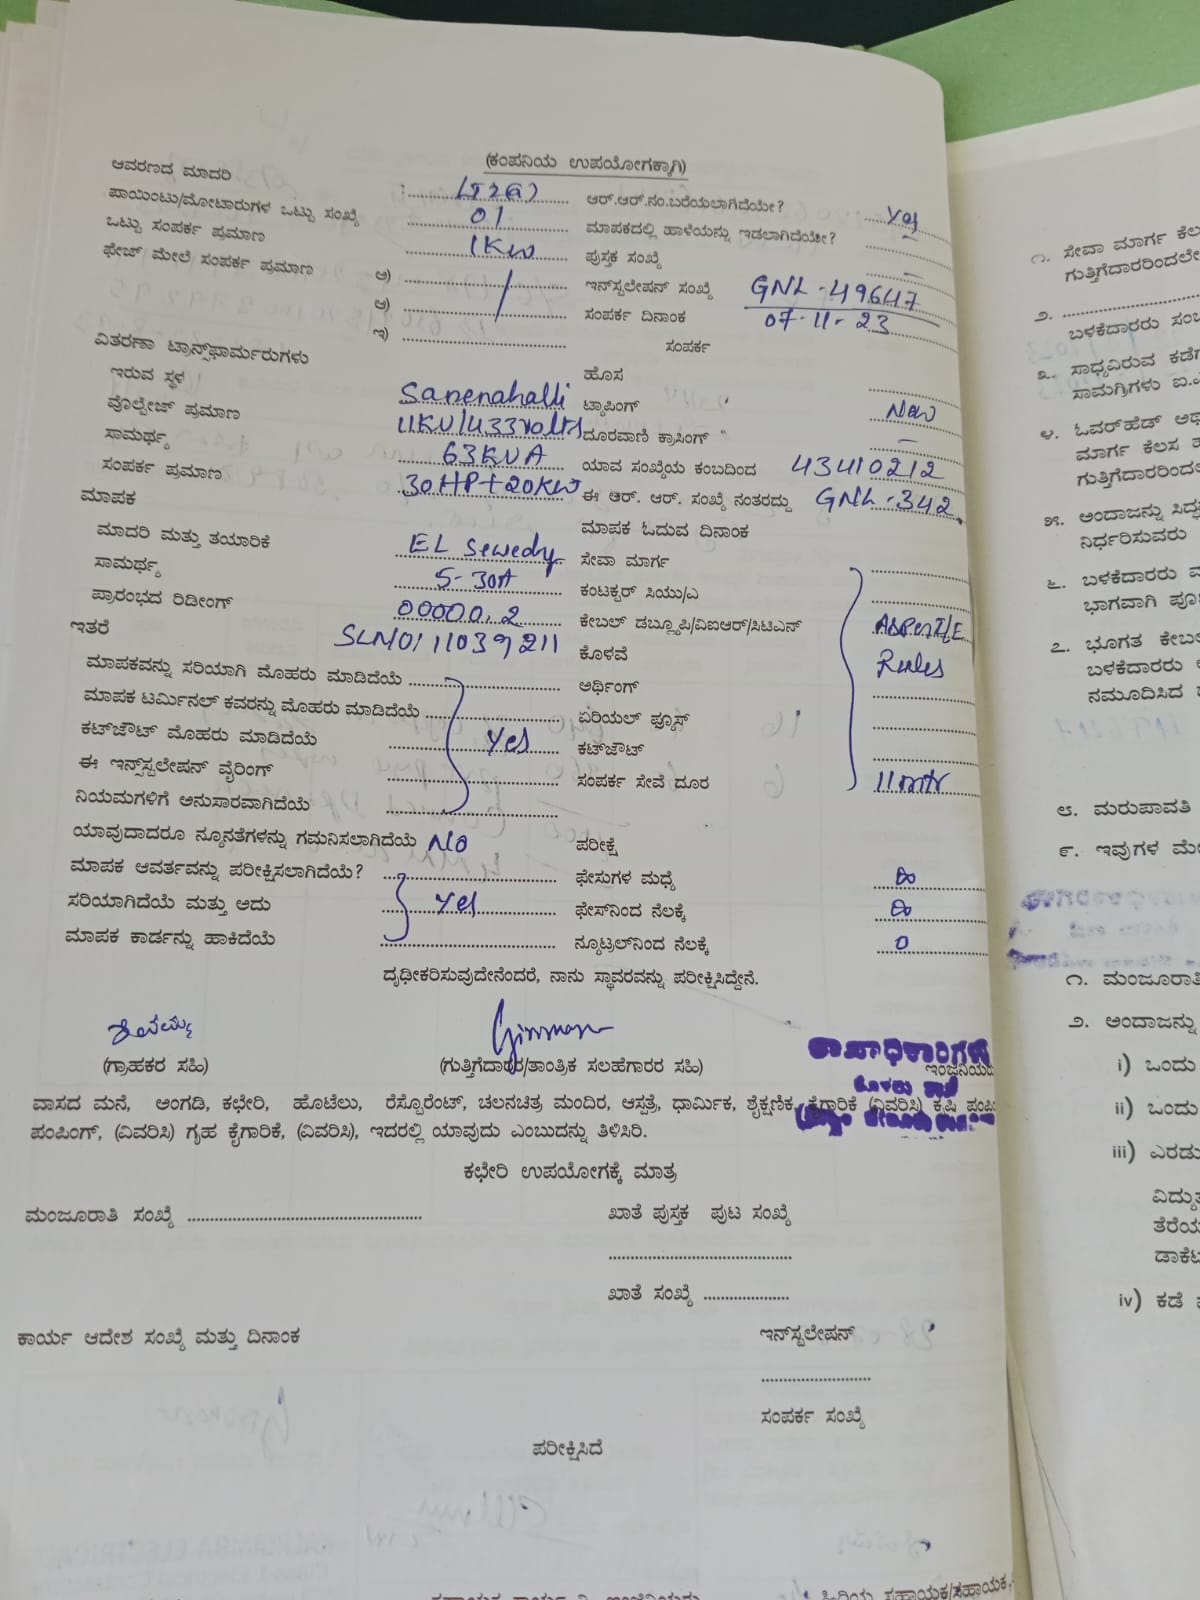 (ಕಂಪನಿಯ ಉಪಯೋಗಕ್ಕಾಗಿ)
ಆವರಣದ ಮಾದರಿ :
ಪಾಯಿಂಟು/ಮೋಟಾರುಗಳ ಒಟ್ಟು ಸಂಖ್ಯೆ 01
ಒಟ್ಟು ಸಂಪರ್ಕ ಪ್ರಮಾಣ 1KW
ಫೇಜ್ ಮೇಲೆ ಸಂಪರ್ಕ ಪ್ರಮಾಣ ಅ)
ಆ)
ಇ)
ವಿತರಣಾ ಟ್ರಾನ್ಸ್‌ಫಾರ್ಮರುಗಳು
ಇರುವ ಸ್ಥಳ Sanenahalli
ವೊಲ್ಟೇಜ್ ಪ್ರಮಾಣ 11KV/433volts
ಸಾಮರ್ಥ್ಯ 63KVA
ಸಂಪರ್ಕ ಪ್ರಮಾಣ 30HP+20KW
ಮಾಪಕ
ಮಾದರಿ ಮತ್ತು ತಯಾರಿಕೆ EL Sewedy
ಸಾಮರ್ಥ್ಯ 5-30A
ಪ್ರಾರಂಭದ ರಿಡೀಂಗ್ 00000.2
ಇತರೆ SLNO/11039211
ಮಾಪಕವನ್ನು ಸರಿಯಾಗಿ ಮೊಹರು ಮಾಡಿದೆಯೆ
ಮಾಪಕ ಟರ್ಮಿನಲ್ ಕವರನ್ನು ಮೊಹರು ಮಾಡಿದೆಯೆ
ಕಟ್‌ಔಟ್ ಮೊಹರು ಮಾಡಿದೆಯೆ Yes
ಈ ಇನ್ಸ್‌ಸ್ಟಲೇಷನ್ ವೈರಿಂಗ್
ನಿಯಮಗಳಿಗೆ ಅನುಸಾರವಾಗಿದೆಯೆ
ಯಾವುದಾದರೂ ನ್ಯೂನತೆಗಳನ್ನು ಗಮನಿಸಲಾಗಿದೆಯೆ NO
ಮಾಪಕ ಆವರ್ತವನ್ನು ಪರೀಕ್ಷಿಸಲಾಗಿದೆಯೆ?
ಸರಿಯಾಗಿದೆಯೆ ಮತ್ತು ಅದು Yes
ಮಾಪಕ ಕಾರ್ಡನ್ನು ಹಾಕಿದೆಯೆ
ಆರ್.ಆರ್.ನಂ.ಬರೆಯಲಾಗಿದೆಯೇ? Yes
ಮಾಪಕದಲ್ಲಿ ಹಾಳೆಯನ್ನು ಇಡಲಾಗಿದೆಯೇ? –
ಪುಸ್ತಕ ಸಂಖ್ಯೆ –
ಇನ್‌ಸ್ಟಲೇಷನ್ ಸಂಖ್ಯೆ GNL-49647
ಸಂಪರ್ಕ ದಿನಾಂಕ 07-11-23
ಸಂಪರ್ಕ
ಹೊಸ
ಟ್ಯಾಪಿಂಗ್ New
ದೂರವಾಣಿ ಕ್ರಾಸಿಂಗ್ " –
ಯಾವ ಸಂಖ್ಯೆಯ ಕಂಬದಿಂದ 43410212
ಈ ಆರ್. ಆರ್. ಸಂಖ್ಯೆ ನಂತರದ್ದು GNL-342
ಮಾಪಕ ಓದುವ ದಿನಾಂಕ
ಸೇವಾ ಮಾರ್ಗ
ಕಂಟಕ್ಟರ್ ಸಿಯು/ಎ
ಕೇಬಲ್ ಡಬ್ಲ್ಯೂಪಿ/ವಿಐಆರ್/ಸಿಟಿಎಸ್
ಕೊಳವೆ Rules
ಅರ್ಥಿಂಗ್
ಏರಿಯಲ್ ಫ್ಯೂಸ್
ಕಟ್‌ಔಟ್
ಸಂಪರ್ಕ ಸೇವೆ ದೂರ 11mtr
ಪರೀಕ್ಷೆ
ಫೇಸುಗಳ ಮಧ್ಯೆ ∞
ಫೇಸ್‌ನಿಂದ ನೆಲಕ್ಕೆ ∞
ನ್ಯೂಟ್ರಲ್‌ನಿಂದ ನೆಲಕ್ಕೆ 0
ದೃಢೀಕರಿಸುವುದೇನೆಂದರೆ, ನಾನು ಸ್ಥಾವರವನ್ನು ಪರೀಕ್ಷಿಸಿದ್ದೇನೆ.
(ಗ್ರಾಹಕರ ಸಹಿ) (ಗುತ್ತಿಗೆದಾರರ/ತಾಂತ್ರಿಕ ಸಲಹೆಗಾರರ ಸಹಿ)
ವಾಸದ ಮನೆ, ಅಂಗಡಿ, ಕಛೇರಿ, ಹೊಟೆಲು, ರೆಸ್ಟೊರೆಂಟ್, ಚಲನಚಿತ್ರ ಮಂದಿರ, ಆಸ್ಪತ್ರೆ, ಧಾರ್ಮಿಕ, ಶೈಕ್ಷಣಿಕ, ಕೈಗಾರಿಕೆ (ವಿವರಿಸಿ) ಕೃಷಿ
ಪಂಪಿಂಗ್, (ವಿವರಿಸಿ) ಗೃಹ ಕೈಗಾರಿಕೆ, (ವಿವರಿಸಿ), ಇದರಲ್ಲಿ ಯಾವುದು ಎಂಬುದನ್ನು ತಿಳಿಸಿರಿ.
ಕಛೇರಿ ಉಪಯೋಗಕ್ಕೆ ಮಾತ್ರ
ಮಂಜೂರಾತಿ ಸಂಖ್ಯೆ ಖಾತೆ ಪುಸ್ತಕ ಪುಟ ಸಂಖ್ಯೆ
ಖಾತೆ ಸಂಖ್ಯೆ
ಕಾರ್ಯ ಆದೇಶ ಸಂಖ್ಯೆ ಮತ್ತು ದಿನಾಂಕ ಇನ್‌ಸ್ಟಲೇಷನ್
ಸಂಪರ್ಕ ಸಂಖ್ಯೆ
ಪರೀಕ್ಷಿಸಿದೆ
೧. ಸೇವಾ ಮಾರ್ಗ
ಗುತ್ತಿಗೆದಾರರಿಂದಲೇ
೨.
ಬಳಕೆದಾರರು
೩. ಸಾಧ್ಯವಿರುವ
ಸಾಮಗ್ರಿಗಳು
೪. ಓವರ್‌ಹೆಡ್
ಮಾರ್ಗ ಕೆಲಸ
೫. ಅಂದಾಜನ್ನು
ನಿರ್ಧರಿಸುವರು
೬. ಬಳಕೆದಾರರು
ಭಾಗವಾಗಿ
೭. ಭೂಗತ
ಬಳಕೆದಾರರು
ನಮೂದಿಸಿದ
೮. ಮರುಪಾವತಿ
೯. ಇವುಗಳ
೧. ಮಂಜೂರಾತಿ
೨. ಅಂದಾಜನ್ನು
i) ಒಂದು
ii) ಒಂದು
iii) ಎರಡು
iv) ಕಡೆ